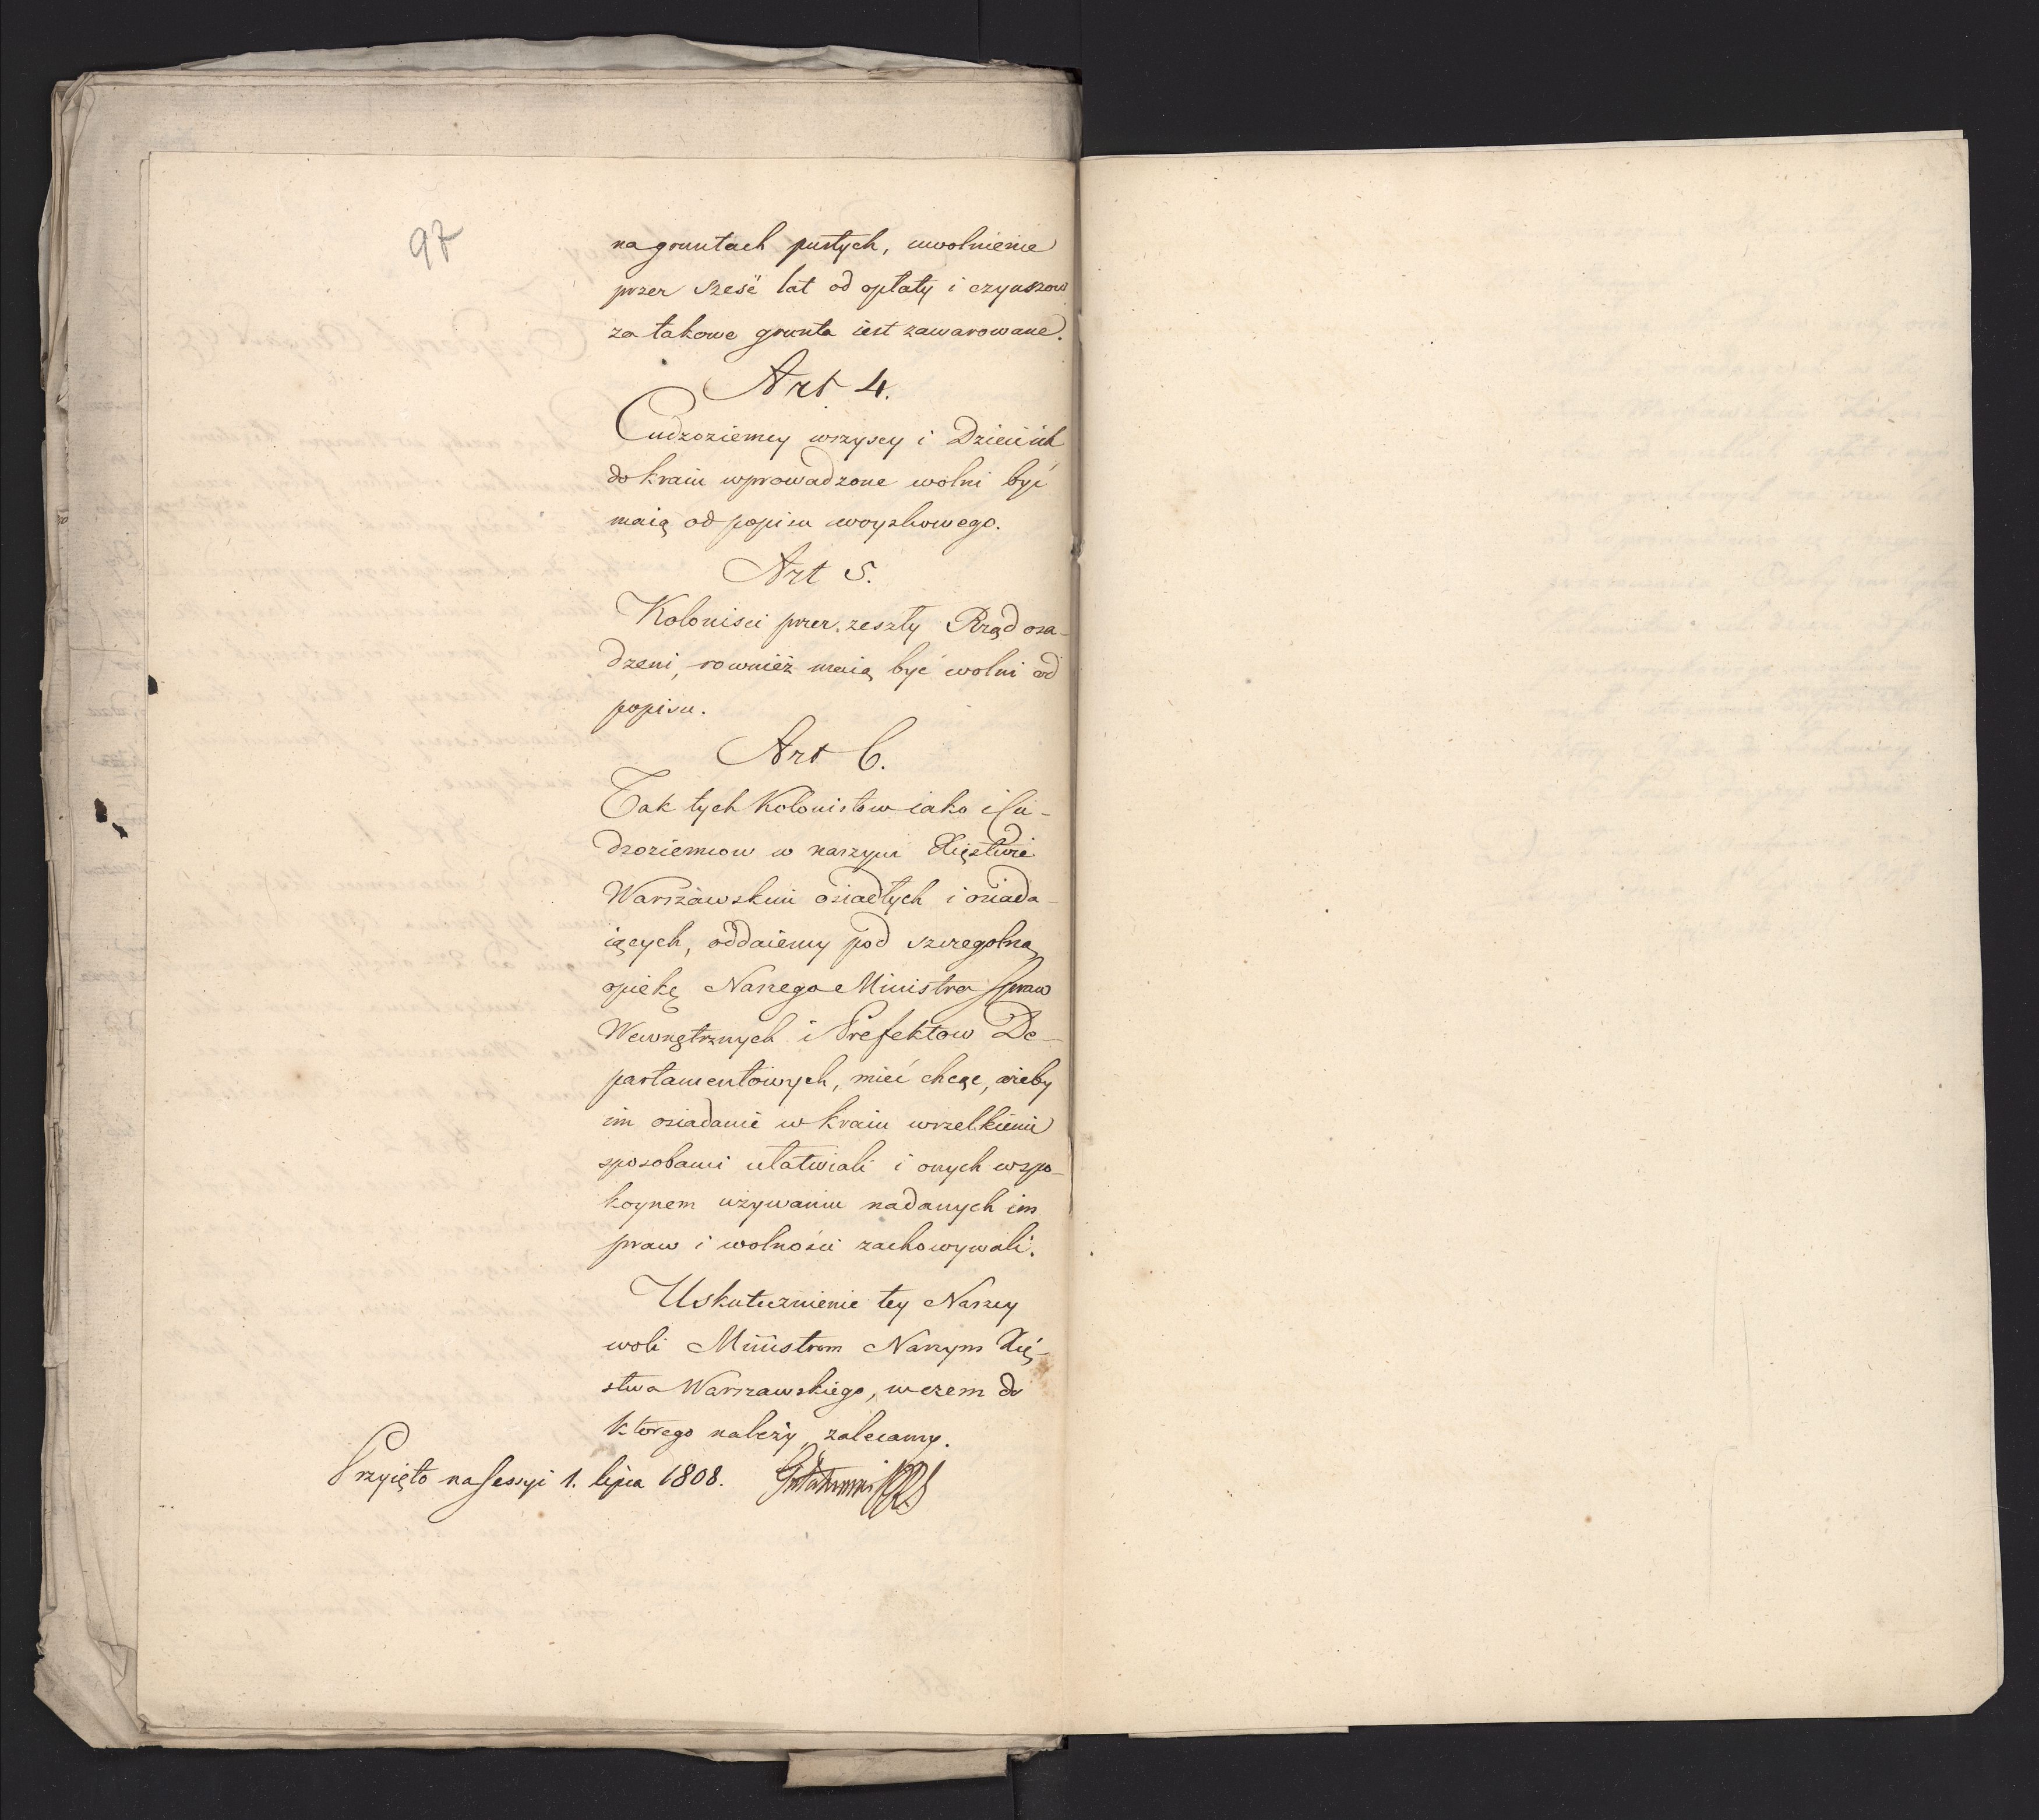 97
na gruntach pustych, uwolnienie
przez sześć lat od opłaty i czynszow
za takowe grunta iest zawarowane.
Art 4.
Cudzoziemcy wszyscy i Dzieci ich
do kraiu wprowadzone wolni być
maią od popisu woyskowego.
Art 5.
Kolonisci przez zeszły Rząd osa-
dzeni, rownież maią być wolni od
popisu.
Art 6.
Tak tych Kolonistow iako i Cu-
dzoziemcow w naszym Xięstwie
Warszawskim osiadłych i osiada-
iących, oddaiemy pod szczegolną
opiekę Naszego Ministra Spraw
Wewnętrznych i Prefektow De-
partamentowych, mieć chcąc, ażeby
im osiadanie w kraiu wszelkiemi
sposobami ułatwiali i onych w spo-
koynem używaniu nadanych im
praw i wolności zachowywali.
Uskutecznienie tey Naszey
woli Ministrom Naszym Xię-
stwa Warszawskiego, w czem do
ktorego należy, zalecamy.
Przyięto na Sessyi 1. lipca 1808.